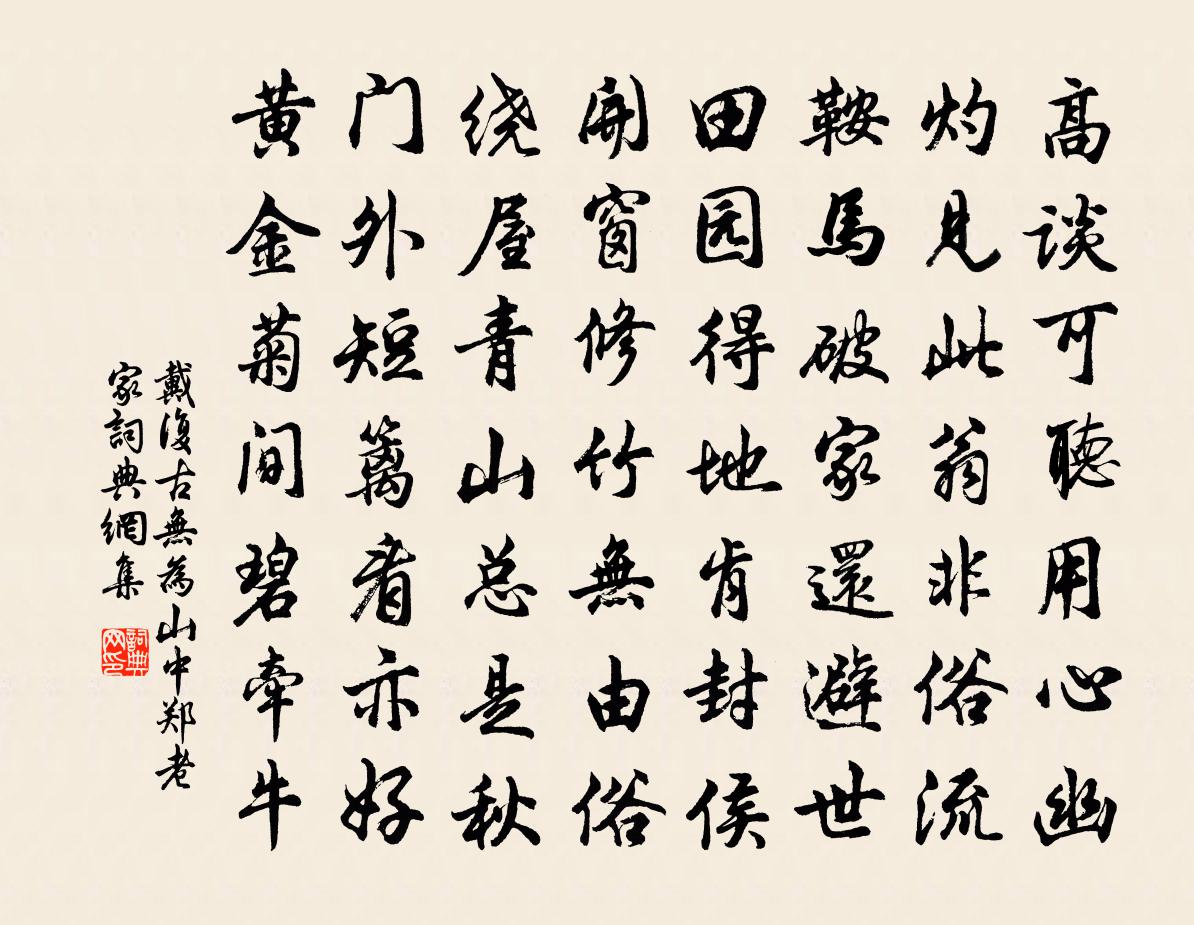 高谈可聽用心幽
灼見此翁非俗流
鞍馬破家還避世
田园得地肯封侯
開窗修竹無由俗
绕屋青山总是秋
门外短篱看亦好
黄金菊间碧牵牛
戴復古無為山中郑老
家詞典網集
詞典网印